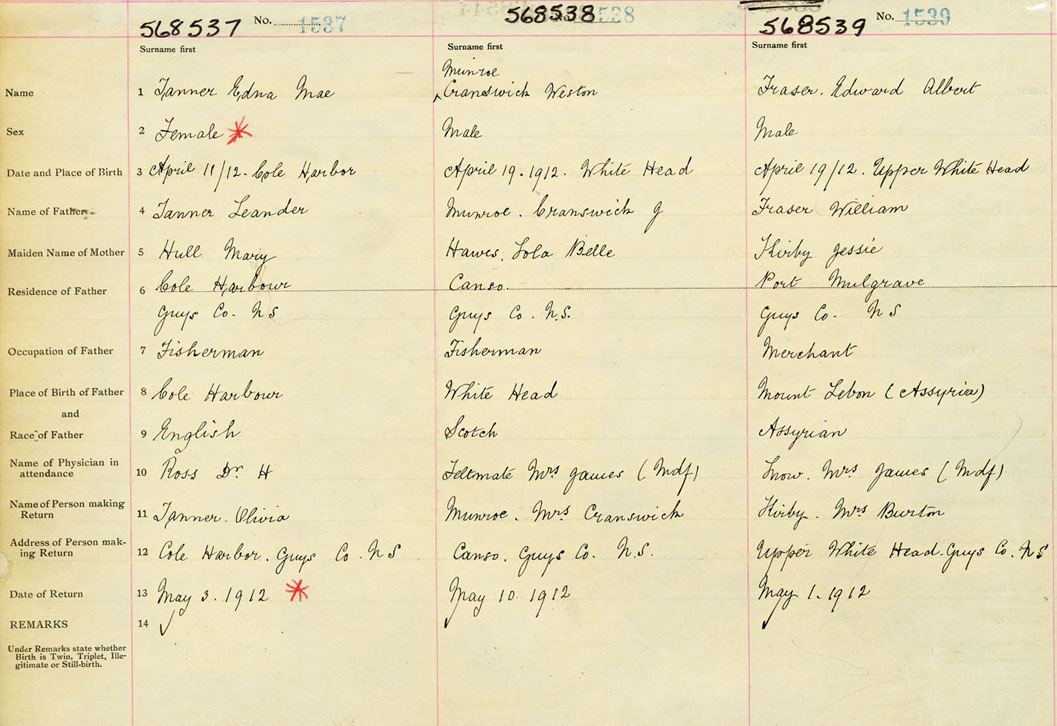 568537 No. 1537 568538 538 568539 No. 1539
Surname first Surname first Surname first
Munroe
Name 1 Tanner Edna Mae Cranswick Weston Fraser. Edward Albert
Sex 2 Female Male Male
Date and Place of Birth 3 April 11/12. Cole Harbor April 19. 1912. White Head April 19/12. Upper White Head
Name of Father 4 Tanner Leander Munroe. Cranswick J Fraser William
Maiden Name of Mother 5 Hull Mary Hawes, Lola Belle Kirby Jessie
Residence of Father 6 Cole Harbour Canso. Port Mulgrave
Guys Co. N S Guys Co. N.S. Guys Co. N S
Occupation of Father 7 Fisherman Fisherman Merchant
Place of Birth of Father 8 Cole Harbour White Head Mount Lebon (Assyria)
and
Race of Father 9 English Scotch Assyrian
Name of Physician in
attendance 10 Ross Dr. H Feltmate Mrs James (Mdf) Snow. Mrs James (Mdf)
Name of Person making
Return 11 Tanner. Olivia Munroe. Mrs Cranswick Kirby. Mrs Burton
Address of Person mak-
ing Return 12 Cole Harbor. Guys Co. N S Canso. Guys Co. N.S. Upper White Head. Guys Co. N S
Date of Return 13 May 3. 1912 May 10. 1912 May 1. 1912
REMARKS 14
Under Remarks state whether
Birth is Twin, Triplet, Ille-
gitimate or Still-birth.